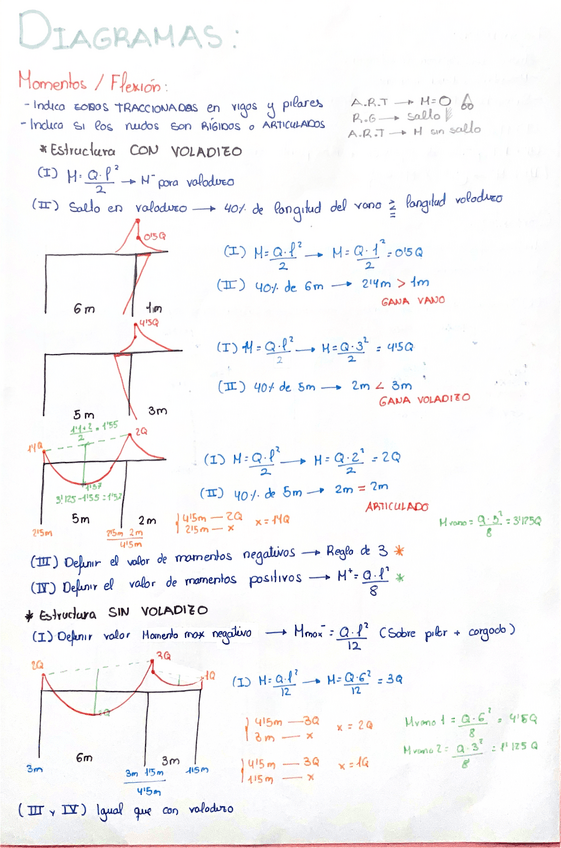 DIAGRAMAS:
Momentos / Flexión:
- Indica ZONAS TRACCIONADAS en vigas y pilares
- Indica si los nudos son RÍGIDOS o ARTICULADOS
A.R.T → M=0
R.G → salto
A.R.T → M sin salto
* Estructura CON VOLADIZO
(I) M = Q·l²/2 → M⁻ para voladizo
(II) Salto en voladizo → 40% de longitud del vano ≥ longitud voladizo
0'5Q
6m 1m
(I) M = Q·l²/2 → M = Q·1²/2 = 0'5Q
(II) 40% de 6m → 2'4m > 1m
GANA VANO
4'5Q
5m 3m
(I) M = Q·l²/2 → M = Q·3²/2 = 4'5Q
(II) 40% de 5m → 2m < 3m
GANA VOLADIZO
1'4Q
1'1+2/2 = 1'55
2Q
1'57
3'125-1'55 = 1'57
5m 2m
2'5m 2'5m 2m
4'5m
(I) M = Q·l²/2 → M = Q·2²/2 = 2Q
(II) 40% de 5m → 2m = 2m
ARTICULADO
4'5m — 2Q
2'5m — x
x = 1'1Q
M vano = Q·5²/8 = 3'125Q
(III) Definir el valor de momentos negativos → Regla de 3 *
(IV) Definir el valor de momentos positivos → M⁺ = Q·l²/8 *
* Estructura SIN VOLADIZO
(I) Definir valor Momento max negativo → Mmax⁻ = Q·l²/12 (Sobre pilar + cargado)
2Q 3Q 1Q
6m 3m
3m 3m 1'5m 1'5m
4'5m
(I) M = Q·l²/12 → M = Q·6²/12 = 3Q
4'5m — 3Q
3m — x
x = 2Q
4'5m — 3Q
1'5m — x
x = 1Q
M vano 1 = Q·6²/8 = 4'5Q
M vano 2 = Q·3²/8 = 1'125Q
(III y IV) Igual que con voladizo